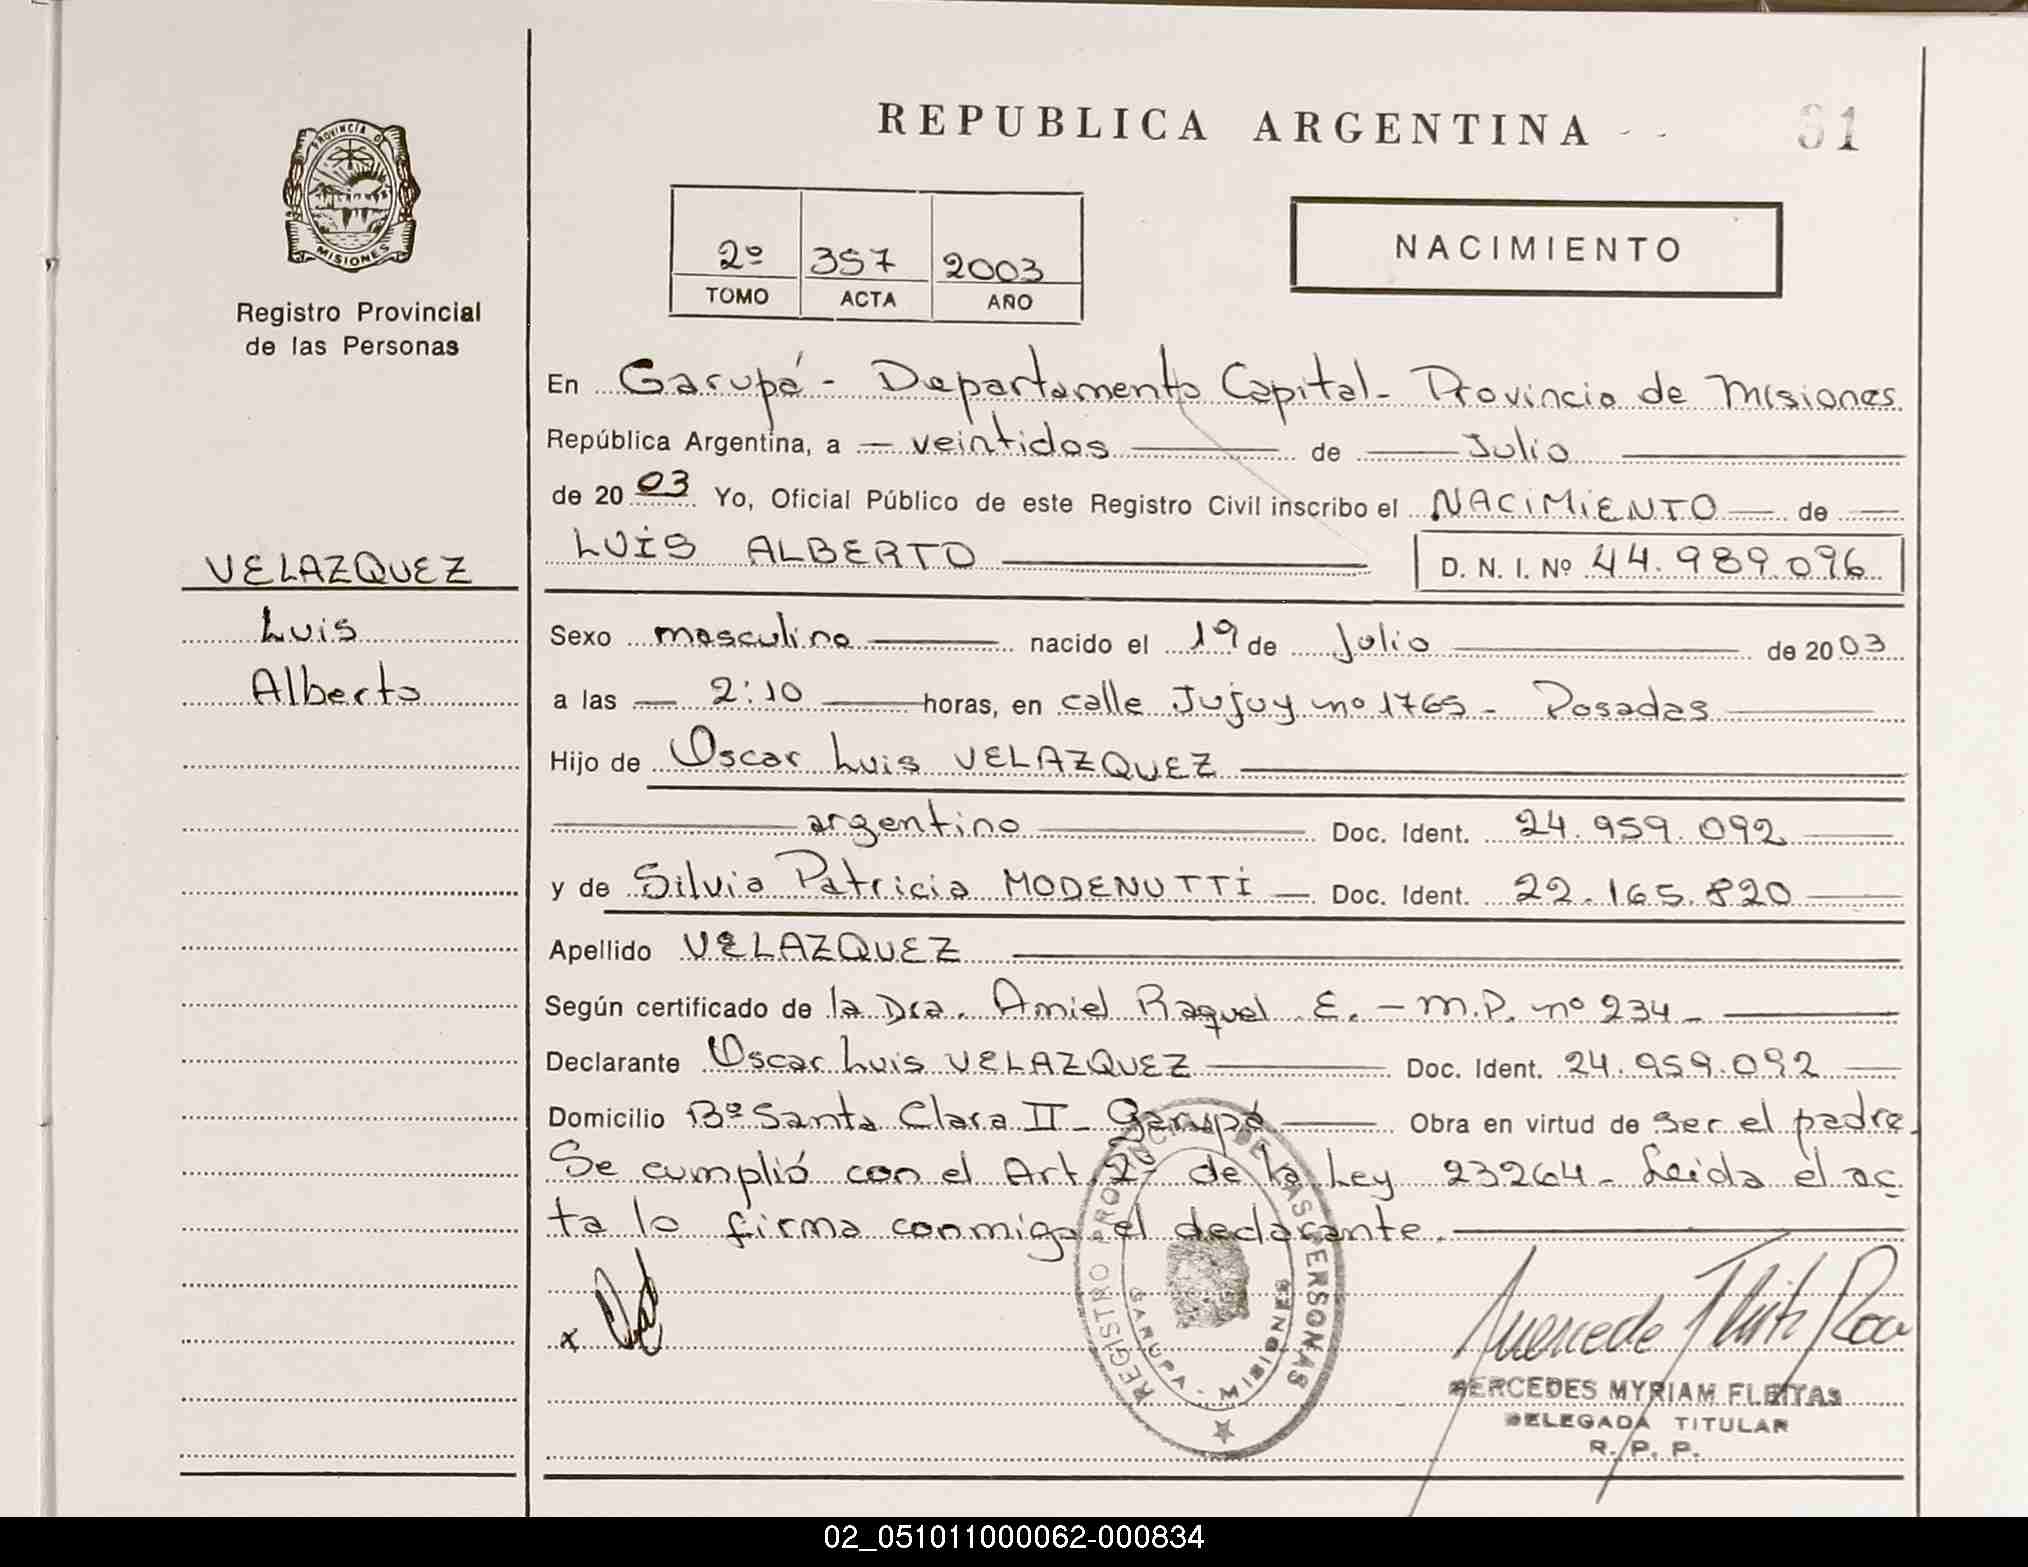 REPUBLICA ARGENTINA
61
PROVINCIA DE
MISIONES
Registro Provincial
de las Personas
VELAZQUEZ
Luis
Alberto
2º 357 2003
TOMO ACTA AÑO
NACIMIENTO
En Garupá - Departamento Capital - Provincia de Misiones
República Argentina, a — veintidos — de — Julio —
de 2003 Yo, Oficial Público de este Registro Civil inscribo el NACIMIENTO — de —
LUIS ALBERTO — D. N. I. Nº 44.989.096
Sexo masculino — nacido el 19 de Julio — de 2003
a las — 2:10 — horas, en calle Jujuy nº 1765 - Posadas —
Hijo de Oscar Luis VELAZQUEZ —
— argentino — Doc. Ident. 24.959.092 —
y de Silvia Patricia MODENUTTI — Doc. Ident. 22.165.820 —
Apellido VELAZQUEZ —
Según certificado de la Dra. Amiel Raquel E. - M.P. nº 234 - —
Declarante Oscar Luis VELAZQUEZ — Doc. Ident. 24.959.092 —
Domicilio Bº Santa Clara II - Garupá — Obra en virtud de ser el padre.
Se cumplió con el Art. 2º de la Ley 23264 - Leida el ac
ta lo firma conmigo el declarante. —
x
REGISTRO PROVINCIAL DE LAS PERSONAS
GARUPA - MISIONES
MERCEDES MYRIAM FLEITAS
DELEGADA TITULAR
R. P. P.
02_051011000062-000834